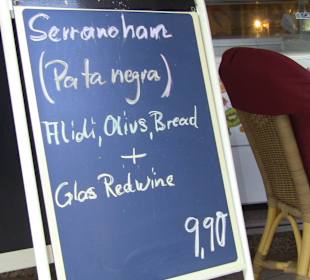 Serranoham
(Pata negra)
Alidi, Olivs, Bread
+
Glas Redwine
9,90